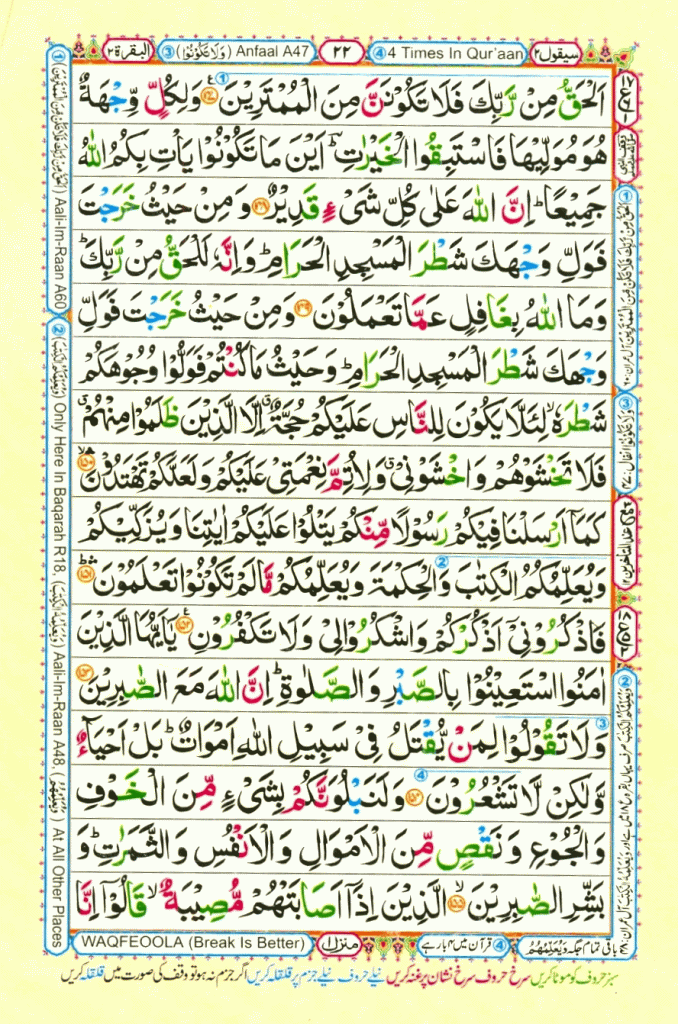 سيقول ٢
④ 4 Times In Qur'aan
٢٢
Anfaal A47 (وَلَا تَكُوْنُوْا) ③
البقرة ٢
اَلْحَقُّ مِنْ رَّبِّكَ فَلَا تَكُوْنَنَّ مِنَ الْمُمْتَرِيْنَ ﴿۱۴۷﴾ وَلِكُلٍّ وِّجْهَةٌ
هُوَ مُوَلِّيْهَا فَاسْتَبِقُوا الْخَيْرٰتِ ؔ اَيْنَ مَا تَكُوْنُوْا يَاْتِ بِكُمُ اللّٰهُ
جَمِيْعًا ؕ اِنَّ اللّٰهَ عَلٰى كُلِّ شَىْءٍ قَدِيْرٌ ﴿۱۴۸﴾ وَ مِنْ حَيْثُ خَرَجْتَ
فَوَلِّ وَجْهَكَ شَطْرَ الْمَسْجِدِ الْحَرَامِ ؕ وَاِنَّهٗ لَلْحَقُّ مِنْ رَّبِّكَ ؕ
وَمَا اللّٰهُ بِغَافِلٍ عَمَّا تَعْمَلُوْنَ ﴿۱۴۹﴾ وَمِنْ حَيْثُ خَرَجْتَ فَوَلِّ
وَجْهَكَ شَطْرَ الْمَسْجِدِ الْحَرَامِ ؕ وَحَيْثُ مَا كُنْتُمْ فَوَلُّوْا وُجُوْهَكُمْ
شَطْرَهٗ ۙ لِئَلَّا يَكُوْنَ لِلنَّاسِ عَلَيْكُمْ حُجَّةٌ ۙ اِلَّا الَّذِيْنَ ظَلَمُوْا مِنْهُمْ ۗ
فَلَا تَخْشَوْهُمْ وَاخْشَوْنِىْ ۗ وَلِاُتِمَّ نِعْمَتِىْ عَلَيْكُمْ وَلَعَلَّكُمْ تَهْتَدُوْنَ ﴿۱۵۰﴾
كَمَاۤ اَرْسَلْنَا فِيْكُمْ رَسُوْلًا مِّنْكُمْ يَتْلُوْا عَلَيْكُمْ اٰيٰتِنَا وَيُزَكِّيْكُمْ
وَيُعَلِّمُكُمُ الْكِتٰبَ وَالْحِكْمَةَ وَيُعَلِّمُكُمْ مَّا لَمْ تَكُوْنُوْا تَعْلَمُوْنَ ﴿۱۵۱﴾
فَاذْكُرُوْنِىْۤ اَذْكُرْكُمْ وَاشْكُرُوْا لِىْ وَلَا تَكْفُرُوْنِ ﴿۱۵۲﴾ يٰۤاَيُّهَا الَّذِيْنَ
اٰمَنُوا اسْتَعِيْنُوْا بِالصَّبْرِ وَالصَّلٰوةِ ؕ اِنَّ اللّٰهَ مَعَ الصّٰبِرِيْنَ ﴿۱۵۳﴾
وَلَا تَقُوْلُوْا لِمَنْ يُّقْتَلُ فِىْ سَبِيْلِ اللّٰهِ اَمْوَاتٌ ؕ بَلْ اَحْيَآءٌ
وَّلٰكِنْ لَّا تَشْعُرُوْنَ ﴿۱۵۴﴾ وَلَنَبْلُوَنَّكُمْ بِشَىْءٍ مِّنَ الْخَوْفِ
وَالْجُوْعِ وَنَقْصٍ مِّنَ الْاَمْوَالِ وَالْاَنْفُسِ وَالثَّمَرٰتِ ؕ وَ
بَشِّرِ الصّٰبِرِيْنَ ﴿۱۵۵﴾ الَّذِيْنَ اِذَاۤ اَصَابَتْهُمْ مُّصِيْبَةٌ ۙ قَالُوْۤا اِنَّا
Aali-Im-Raan A60
② (وَيُعَلِّمُكُمُ الْكِتٰبَ) Only Here In Baqarah R18, (وَيُعَلِّمُهُ الْكِتٰبَ) Aali-Im-Raan A48, (وَيُعَلِّمُهُمُ) At All Other Places
باقی تمام جگہ وَيُعَلِّمُهُمُ
④ قرآن میں ۴ بار ہے
منزل ۱
WAQFEOOLA (Break Is Better)
سبز حروف کو موٹا کریں سرخ حروف سرخ نشان پر غنہ کریں نیلے حروف نیلے جزم پر قلقلہ کریں اگر جزم نہ ہو تو وقف کی صورت میں قلقلہ کریں